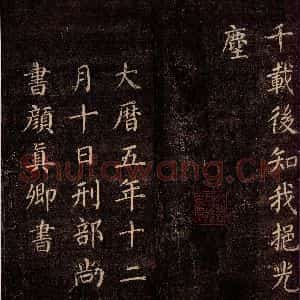 千載後知我挹光
塵
大曆五年十二
月十日刑部尚
書顔真卿書
Shufawang.Cn